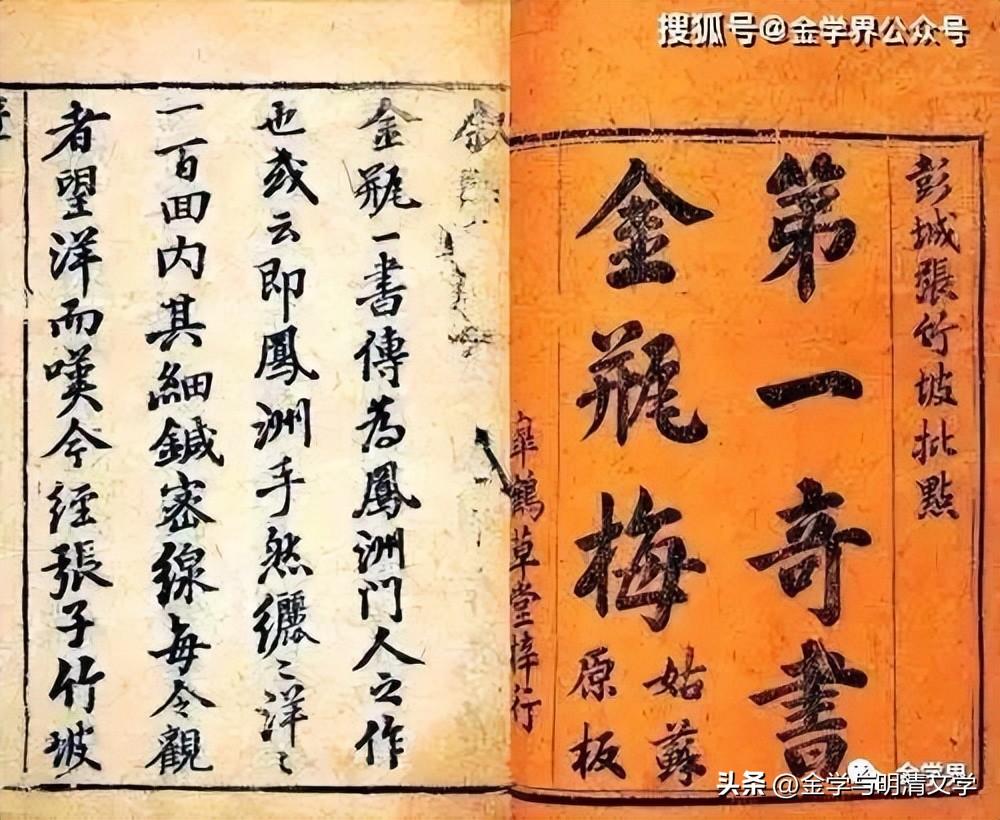 搜狐号@金学界公众号
彭城張竹坡批點
第一奇書
金瓶梅
姑蘇
原板
鶴草堂梓行
金瓶一書傳為鳳洲門人之作
也或云即鳳洲手然纚〻洋〻
一百回内其細鍼密線每令觀
者望洋而嘆今經張子竹坡
金学界
头条 @金学与明清文学